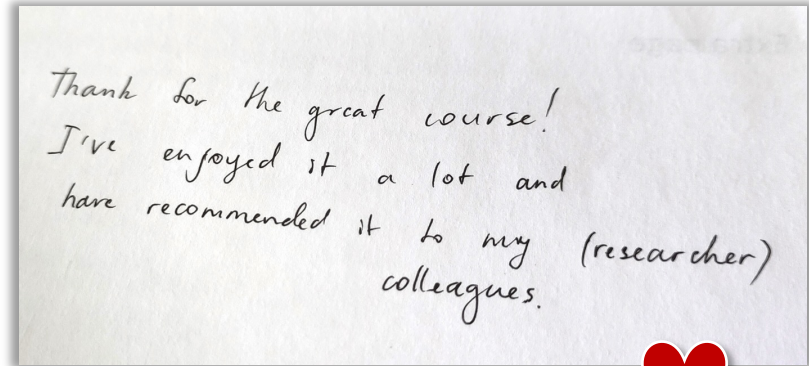 Thank for the great course!
I've enjoyed it a lot and
have recommended it to my (researcher)
colleagues.